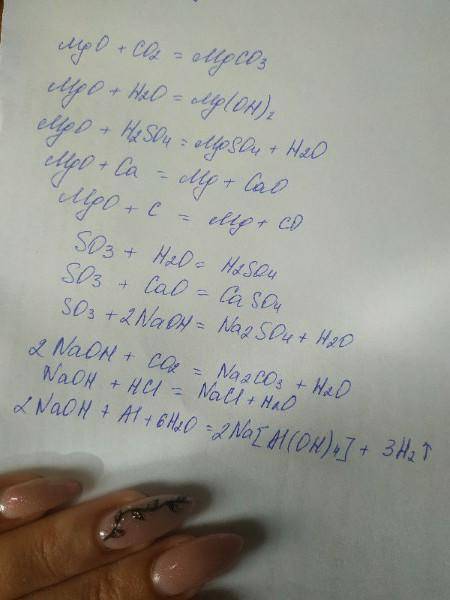 MgO + CO2 = MgCO3
MgO + H2O = Mg(OH)2
MgO + H2SO4 = MgSO4 + H2O
MgO + Ca = Mg + CaO
MgO + C = Mg + CO
SO3 + H2O = H2SO4
SO3 + CaO = CaSO4
SO3 + 2NaOH = Na2SO4 + H2O
2NaOH + CO2 = Na2CO3 + H2O
NaOH + HCl = NaCl + H2O
2NaOH + Al + 6H2O = 2Na[Al(OH)4] + 3H2↑